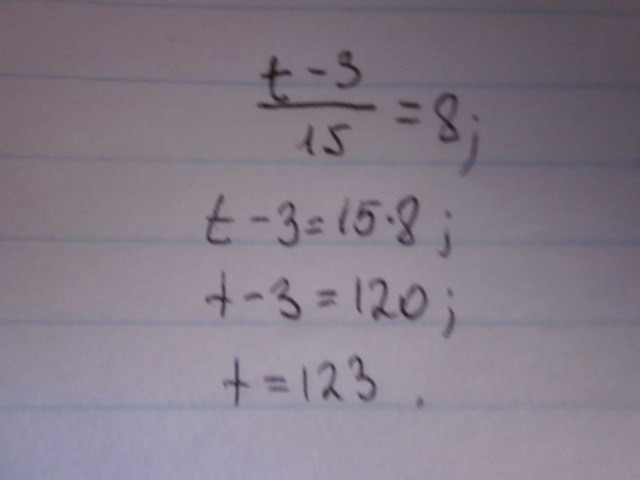 t-3
15 =8;
t-3=15·8;
t-3=120;
t=123.